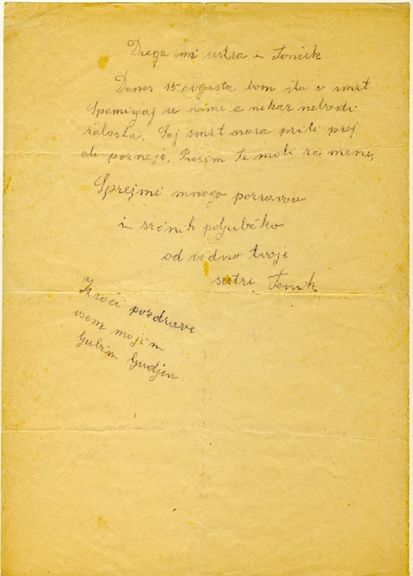 Draga mi sestra in Tonček
Danes 15 avgusta bom šla v smrt
Spominjaj se name a nikar nebodi
žalosta. Saj smrt mora priti prej
ali pozneje. Prosim te moli za mene,
Sprejmi mnogo pozravov
in srčnih poljubčko
od vedno tvoje
sestre,
Izroči pozdrave
vsem mojim